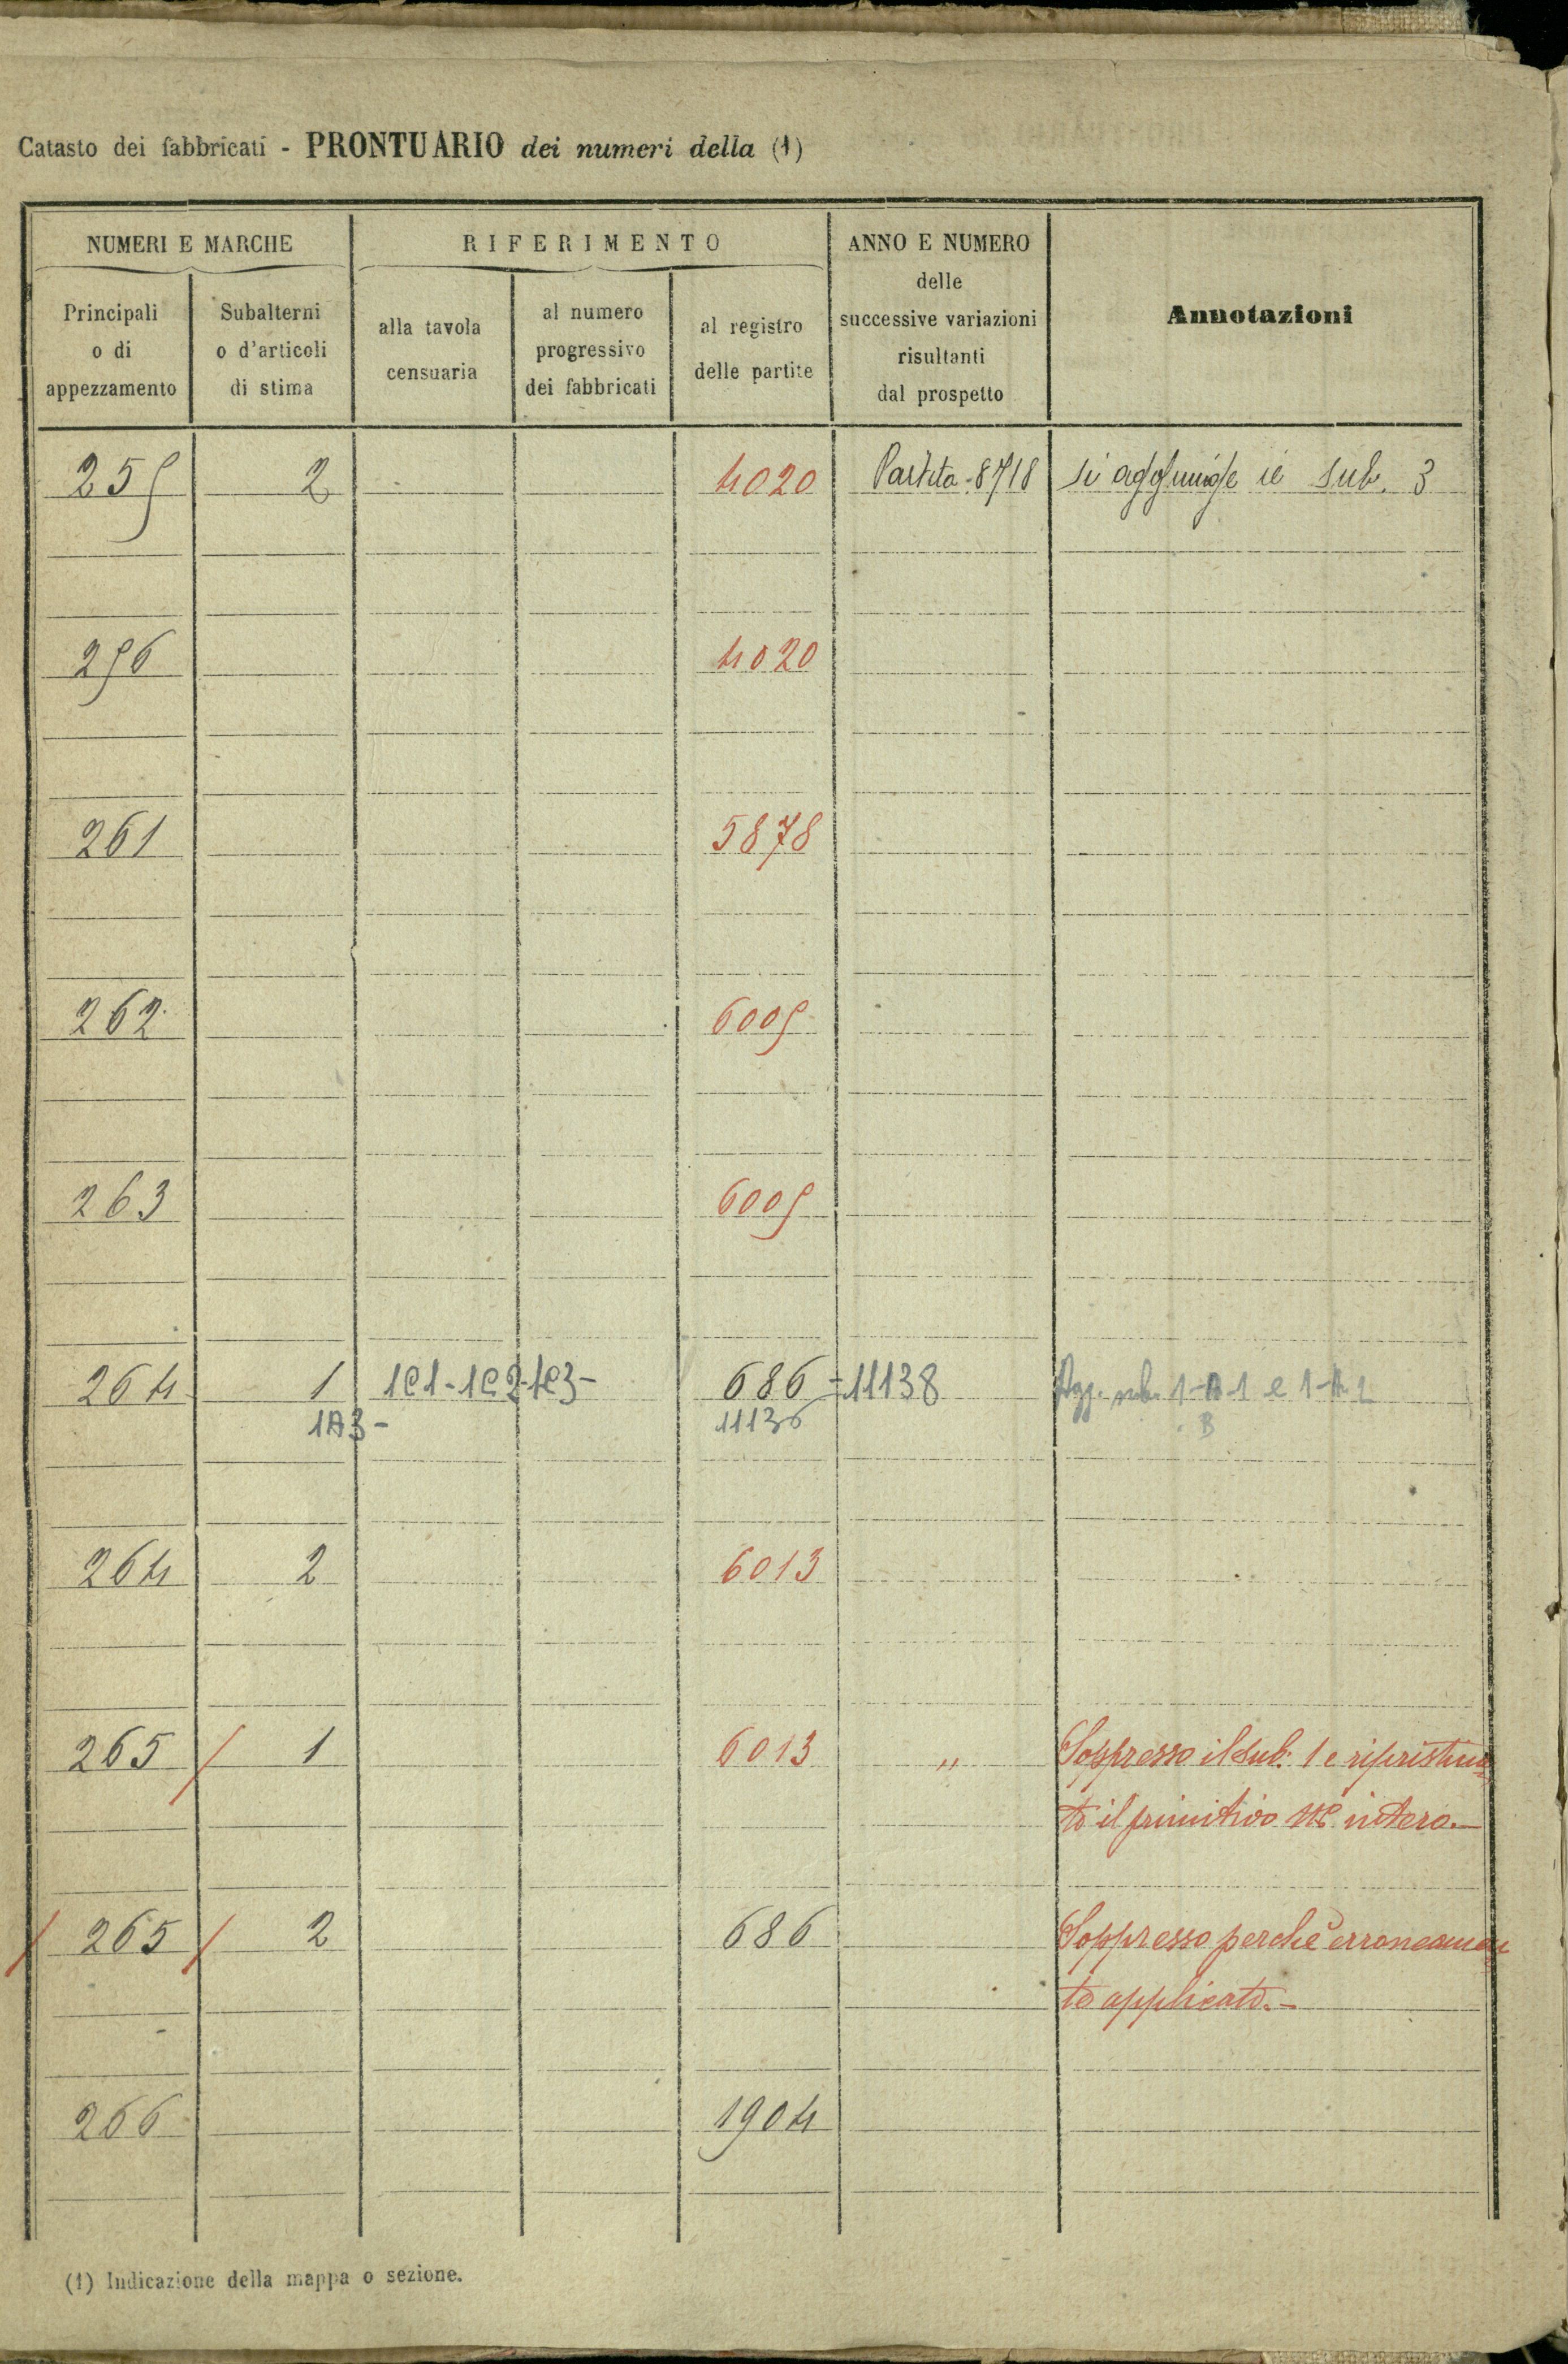 Catasto dei fabbricati - PRONTUARIO dei numeri della (1)
NUMERI E MARCHE
RIFERIMENTO
ANNO E NUMERO
delle
successive variazioni
risultanti
dal prospetto
Annotazioni
Principali
o di
appezzamento
Subalterni
o d'articoli
di stima
alla tavola
censuaria
al numero
progressivo
dei fabbricati
al registro
delle partite
255 2 4020 Partita 8718 si aggiunge il sub. 3
256 4020
261 5878
262 6005
263 6005
264 1 1C1-1C2-1C3- 686 = 11138 Agg. sub. 1-A-1 e 1-A-2
1A3- 11136 B
264 2 6013
265 / 1 6013 " Soppresso il sub: 1 e ripristina
to il primitivo N.° intero.-
/ 265 / 2 686 Soppresso perchè erroneamen
te applicato.-
266 1904
(1) Indicazione della mappa o sezione.